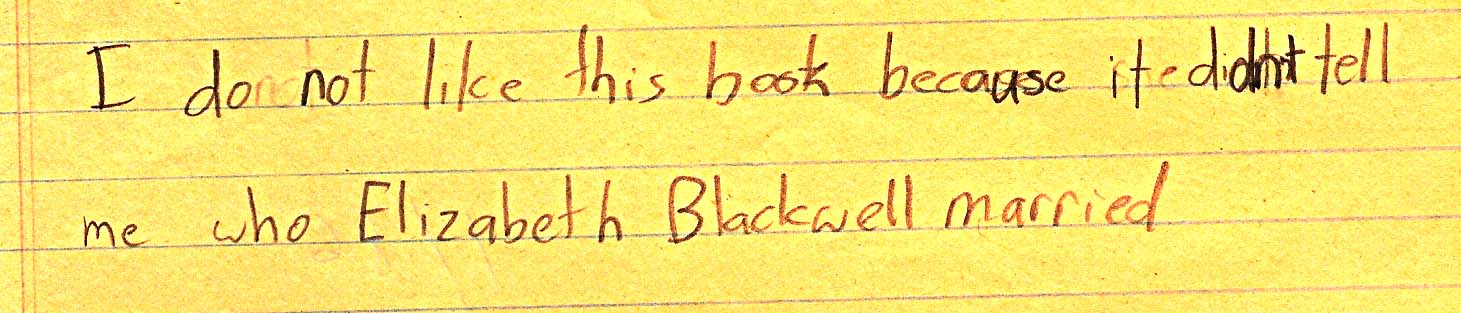 I do not like this book because it didnt tell
me who Elizabeth Blackwell married